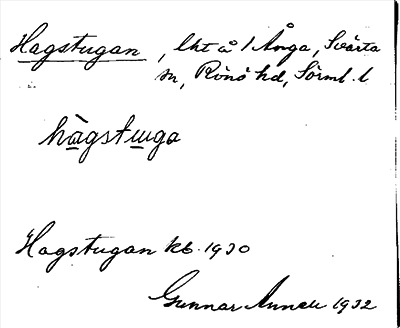 Hagstugan, lht å 1 Ånga, Svärta
sn, Rönö hd, Sörml. l
hagstuga
Hagstugan kb. 1930
Gunnar 1932